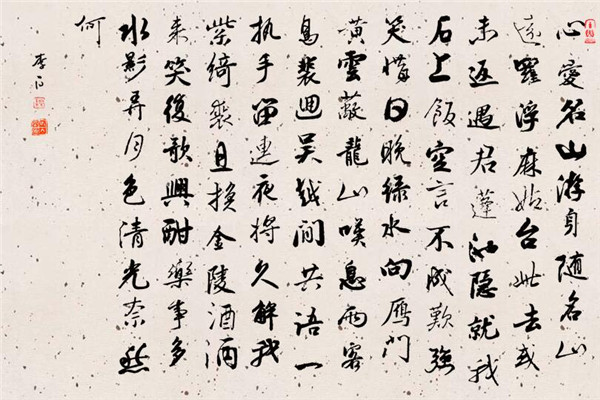 心愛名山游身随名山
遠羅浮麻姑台此去或
未返遇君蓬池隱就我
石上飯空言不成歡強
笑惜日晚綠水向鴈門
黃雲蔽龍山嘆息兩客
鳥裴迴吳越間共語一
執手留連夜將久解我
紫綺裘且換金陵酒酒
來笑復歌興酣樂事多
水影弄月色清光奈愁
何
李白